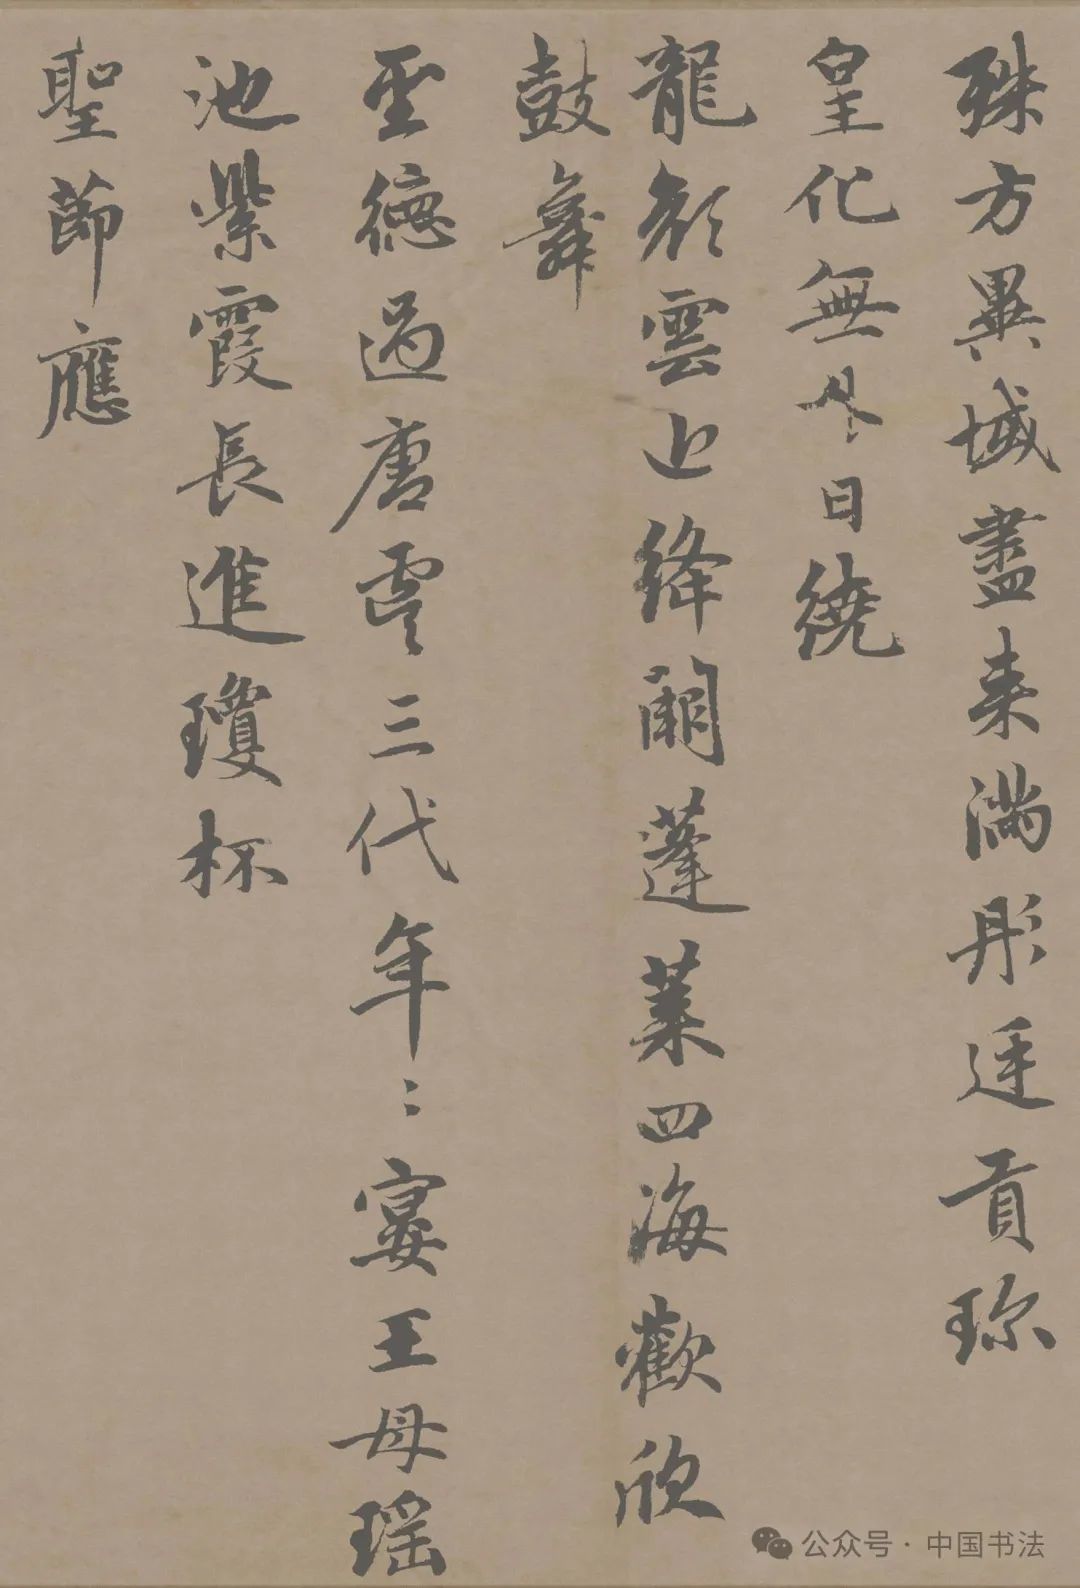 殊方異域盡来満彤廷貢珎
皇化無外日繞
龍顔雲近絳闕蓬萊四海歡欣
鼓舞
聖德過唐虞三代年〻宴王母瑶
池紫霞長進瓊杯
聖節應
公众号·中国书法